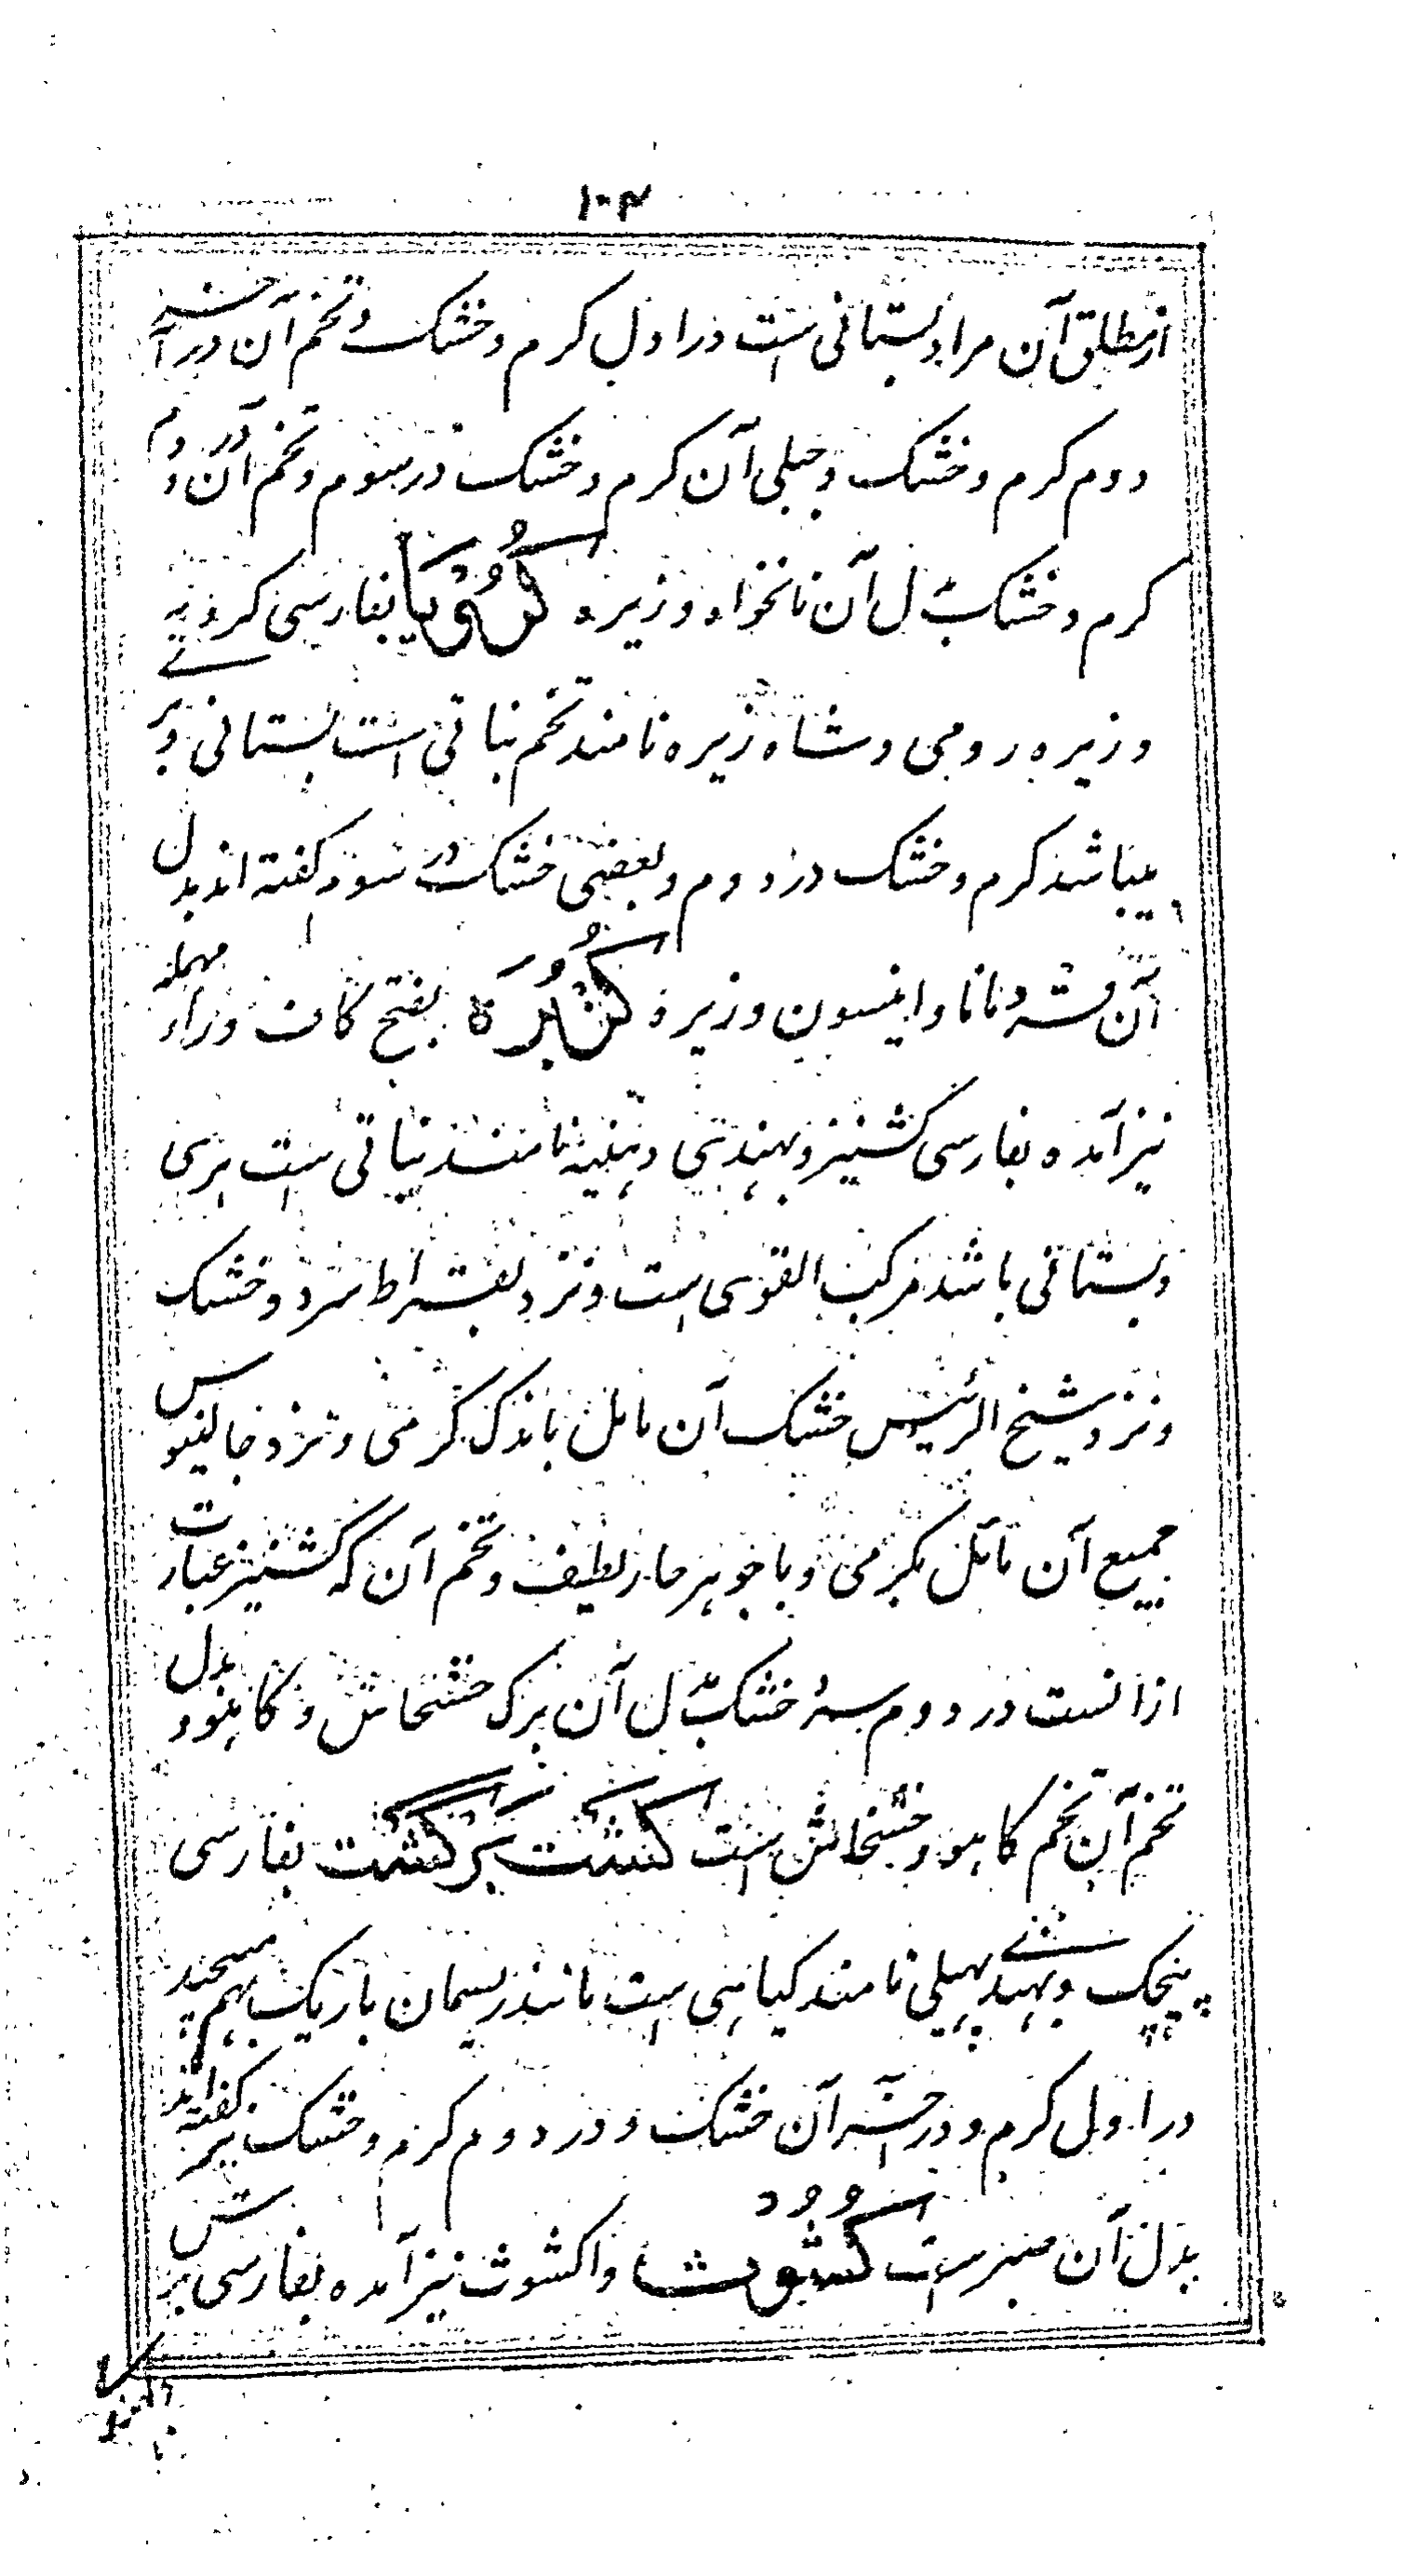 ۱۰۴
از مطلق آن مراد بستانی است در اول کرم و خشک و تخم آن در آخر
دوم کرم و خشک و جبلی آن کرم و خشک در سوم و تخم آن در دوم
کرم و خشک بدل آن نانخواه و زیره کرویا بفارسی کرویه
و زیره رومی و شاه زیره نامند تخم نباتی است بستانی و بری
میباشد کرم و خشک در دوم و بعضی خشک در سوم کفته اند بدل
آن و انیسون و زیره کزبره بفتح کاف و راء مهمله
نیز آمده بفارسی کشنیز و بهندی دهنیه نامند نباتی ست بری
و بستانی باشد مرکب القوی است و نزد بقراط سرد و خشک
و نزد شیخ الرئیس خشک آن مائل باندک کرمی و نزد جالینوس
جمیع آن مائل بکرمی و با جوهر حار لطیف و تخم آن که کشنیز عبارت
ازانست در دوم سرد خشک بدل آن برک خشخاش و کاهو و بدل
تخم آن تخم کاهو و خشخاش است کشت برکشت بفارسی
پیچک و بهندے نامند کیاهی است مانند ریسمان باریک بهم پیچیده
در اول کرم و در آخر آن خشک و در دوم کرم و خشک نیز کفته اند
بدل آن ست کشوث و اکشوث نیز آمده بفارسی